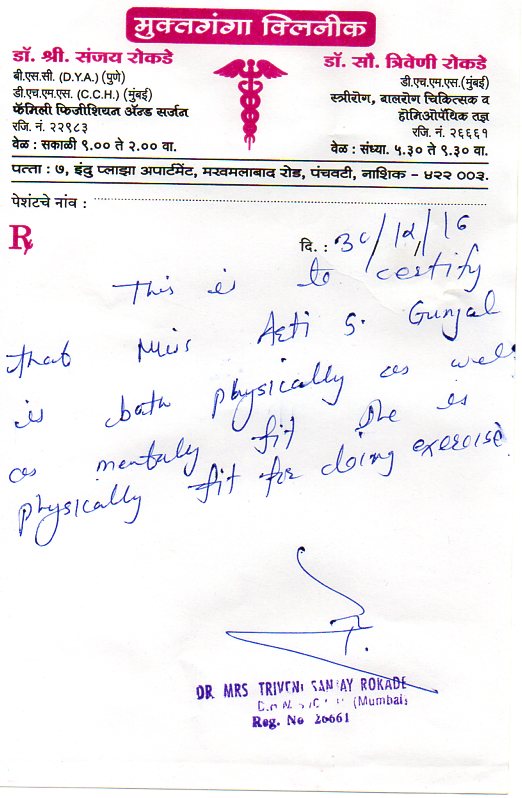 मुक्तगंगा क्लिनीक
डॉ. श्री. संजय रोकडे
बी.एस.सी. (D.Y.A.) (पुणे)
डी.एच.एम.एस. (C.C.H.) (मुंबई)
फॅमिली फिजीशियन ॲन्ड सर्जन
रजि. नं. २२९८३
वेळ : सकाळी ९.०० ते २.०० वा.
डॉ. सौ. त्रिवेणी रोकडे
डी.एच.एम.एस.(मुंबई)
स्त्रीरोग, बालरोग चिकित्सक व
होमिओपॅथिक तज्ञ
रजि. नं. २६६६१
वेळ : संध्या. ५.३० ते ९.३० वा.
पत्ता : ७, इंदु प्लाझा अपार्टमेंट, मखमलाबाद रोड, पंचवटी, नाशिक - ४२२ ००३.
पेशंटचे नांव :
℞
दि. : 30/12/16
This is to certify
that Miss Arti S. Gunjal
is both physically as well
as mentaly fit She is
physically fit for doing exercise.
DR MRS TRIVENI SANJAY ROKADE
(Mumbai)
Reg. No 26661